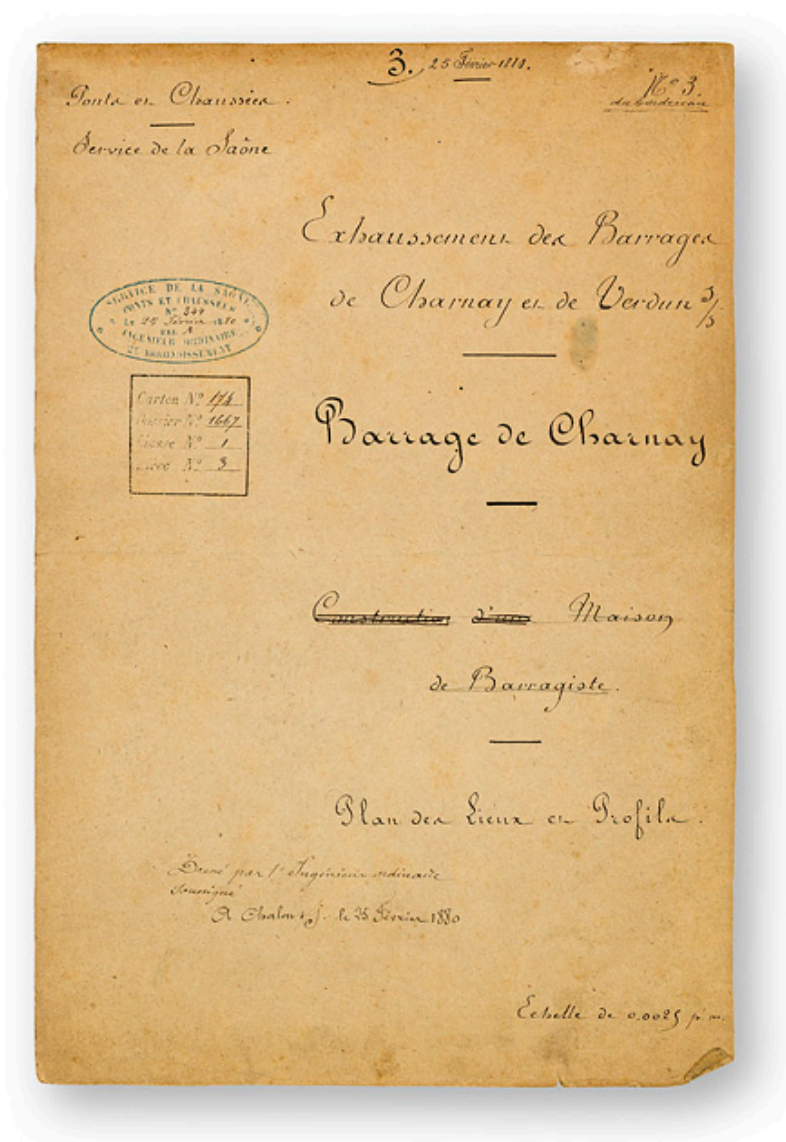 3. 25 Février
N° 3.
du bordereau
Ponts et Chaussées.
Service de la Saône
Exhaussement des Barrages
de Charnay et de Verdun s/s
SERVICE DE LA SAÔNE
PONTS ET CHAUSSÉES
N° 344
le 25 Février 1880
INGÉNIEUR ORDINAIRE
2e ARRONDISSEMENT
Carton N° 174
Dossier N° 1667
Liasse N° 1
Pièce N° 3
Barrage de Charnay
Construction d'une Maison
de Barragiste.
Plan des Lieux et Profils.
Dressé par l'Ingénieur ordinaire
soussigné
A Chalon s/S. le 25 Février 1880
Echelle de 0.0025 p. m.